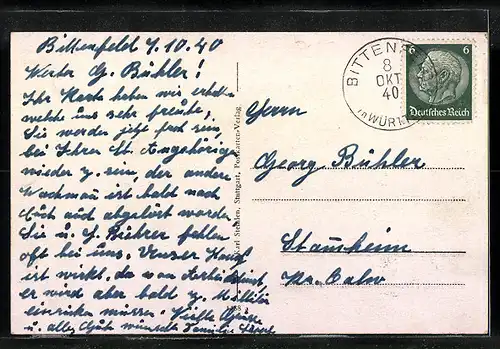 Bittenfeld 7.10.40
Werter G. Bühler!
Ihr Karte haben wir erhalten
welche uns sehr freute,
Sie werden jetzt froh sein,
bei Ihren Angehörigen
wieder z. sein, der andere
ist bald nach
Euch auch abgelöst worden
Sie u. H. fehlen
oft bei uns. Unser
ist wirkl.
er wird aber bald z. Militär
einrücken müssen. Viele Grüße
u. alles Gute wünscht Familie
Postkarten-Verlag
Stuttgart,
BITTENF
8
OKT
40
WÜRTT
6 6
Deutsches Reich
Herrn
Georg Bühler
Stammheim
Kr. Calw